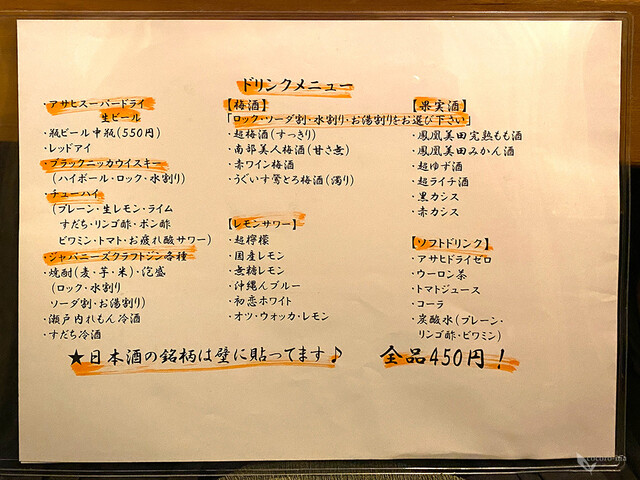 ドリンクメニュー
・アサヒスーパードライ
生ビール
・瓶ビール中瓶(550円)
・レッドアイ
・ブラックニッカウイスキー
(ハイボール・ロック・水割り)
・チューハイ
(プレーン・生レモン・ライム
すだち・リンゴ酢・ポン酢
ビワミン・トマト・お疲れ酸サワー)
・ジャパニーズクラフトジン各種
・焼酎(麦・芋・米)・泡盛
(ロック・水割り
ソーダ割・お湯割り)
・瀬戸内れもん冷酒
・すだち冷酒
【梅酒】
「ロック・ソーダ割・水割り・お湯割りをお選び下さい」
・超梅酒(すっきり)
・南部美人梅酒(甘さ無)
・赤ワイン梅酒
・うぐいす鶯とろ梅酒(濁り)
【レモンサワー】
・超檸檬
・国産レモン
・無糖レモン
・沖縄んブルー
・初恋ホワイト
・オツ・ウォッカ・レモン
【果実酒】
・鳳凰美田完熟もも酒
・鳳凰美田みかん酒
・超ゆず酒
・超ライチ酒
・黒カシス
・赤カシス
【ソフトドリンク】
・アサヒドライゼロ
・ウーロン茶
・トマトジュース
・コーラ
・炭酸水(プレーン・
リンゴ酢・ビワミン)
★日本酒の銘柄は壁に貼ってます♪
全品450円!